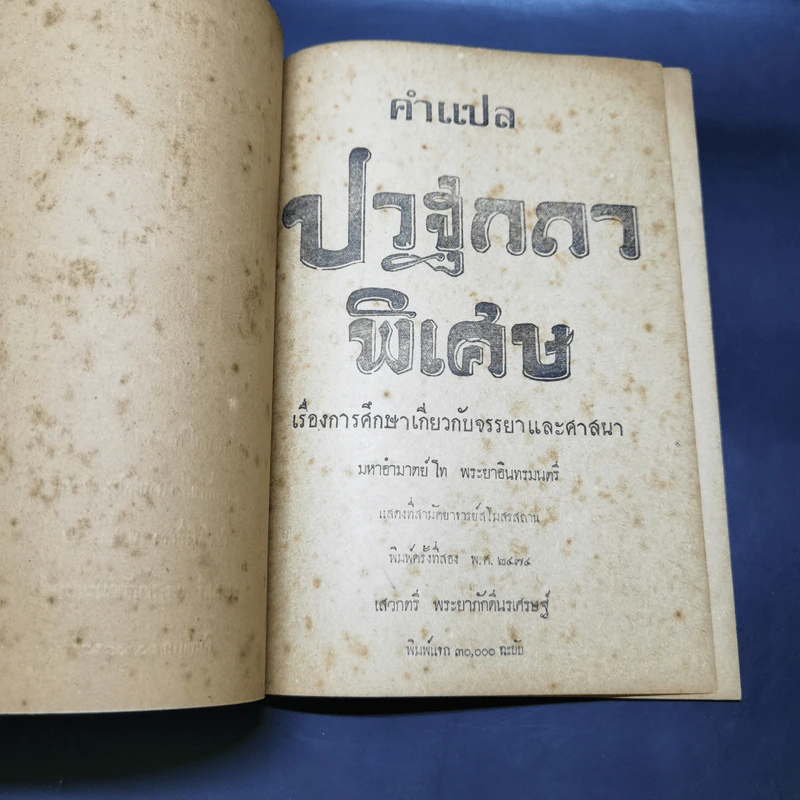 คำแปล
ปาฐกถา
พิเศษ
เรื่องการศึกษาเกี่ยวกับจรรยาและศาสนา
มหาอำมาตย์โท พระยาอินทรมนตรี
แสดงที่สามัคยาจารย์สโมสรสถาน
พิมพ์ครั้งที่สอง พ.ศ. ๒๔๗๔
เสวกตรี พระยาภักดีนรเศรษฐ์
พิมพ์แจก ๓๐,๐๐๐ ฉะบับ